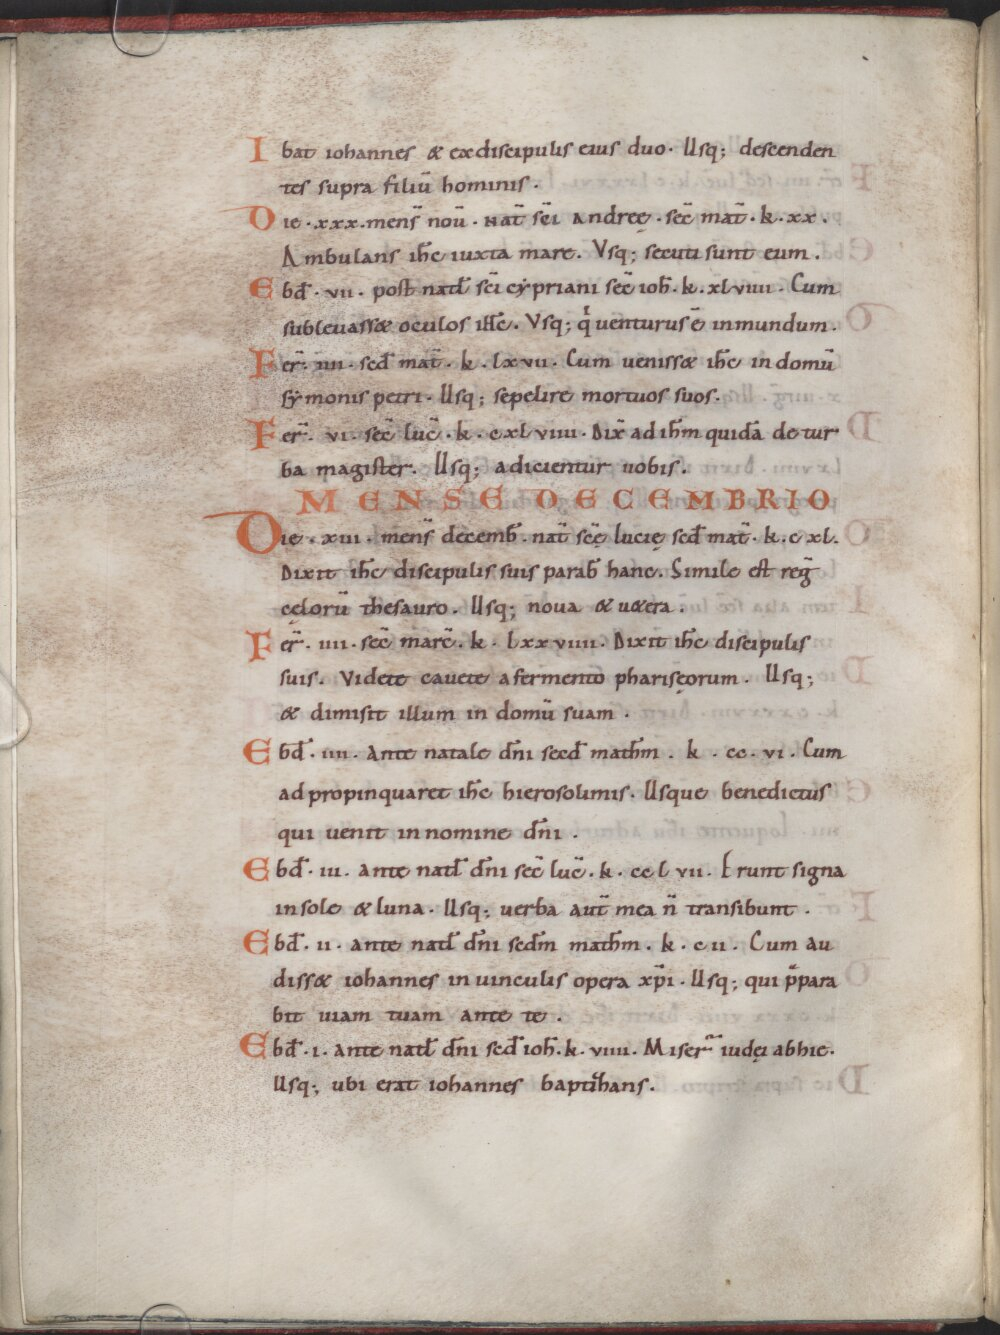 Ibat iohannes & ex discipulis eius duo. Usq; descenden
tes supra filiū hominis.
Die .xxx. mens̄ noū. Nat̄ sc̄i Andreę. sec̄ mat̄. k. xx.
Ambulans ih̄c iuxta mare. Vsq; secuti sunt eum.
Ebd̄. vii. post natl̄ sc̄i cẏpriani sec̄ ioh̄. k. xlviiii. Cum
subleuass& oculos ih̄c. Vsq; q̄ uenturus ē in mundum.
Fer̄. iiii. sed̄ mat̄. k. lxvii. Cum ueniss& ih̄c in domū
sẏmonis petri. Usq; sepelire mortuos suos.
Fer̄. vi. sec̄ luc̄. k. cxlviiii. Dix̄ ad ih̄m quidā de tur
ba magister. Usq; adicientur uobis.
MENSE DECEMBRIO
Die. xiii. mens̄ decemb̄. nat̄ sc̄ę lucię sed̄ mat̄. k. cxl.
Dixit ih̄c discipulis suis parab̄ hanc. Simile est reḡ
cęlorū thesauro. Usq; noua & u&era.
Fer̄. iiii. sec̄ marc̄. k. lxxviiii. Dixit ih̄c discipulis
suis. Videte cauete a fermento phariseorum. Usq;
& dimisit illum in domū suam.
Ebd̄. iiii. Ante natale dn̄i secd̄ math̄m. k. cc. vi. Cum
adpropinquaret ih̄c hierosolimis. Usque benedictus
qui uenit in nomine dn̄i.
Ebd̄. iii. ante natl̄ dn̄i sec̄ luc̄. k. cclvii. Erunt signa
in sole & luna. Usq; uerba aut̄ mea n̄ transibunt.
Ebd̄. ii. ante natl̄ dn̄i secd̄m math̄m. k. cii. Cum au
diss& iohannes in uinculis opera xp̄i. Usq; qui p̄para
bit uiam tuam ante te.
Ebd̄. i. ante natl̄ dn̄i sed̄ ioh̄. k. viiii. Miser̄ iudęi abhie.
Usq; ubi erat iohannes baptihans.